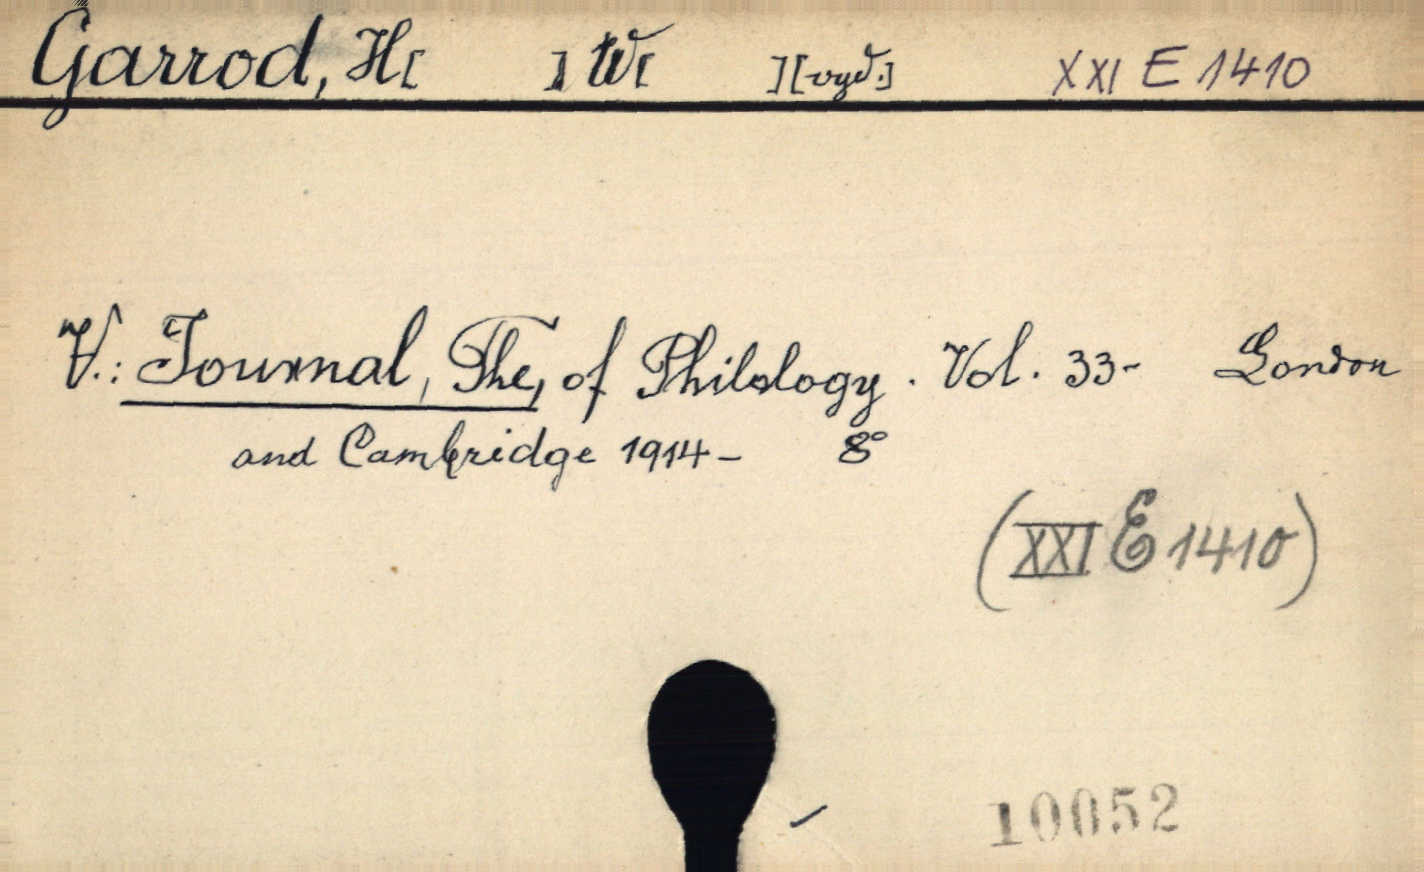 Garrod, H[ ] W[ ][vyd.] XXI E 1410
V.: Journal, The, of Philology. Vol. 33- London
and Cambridge 1914- 8°
(XXI E 1410)
10052